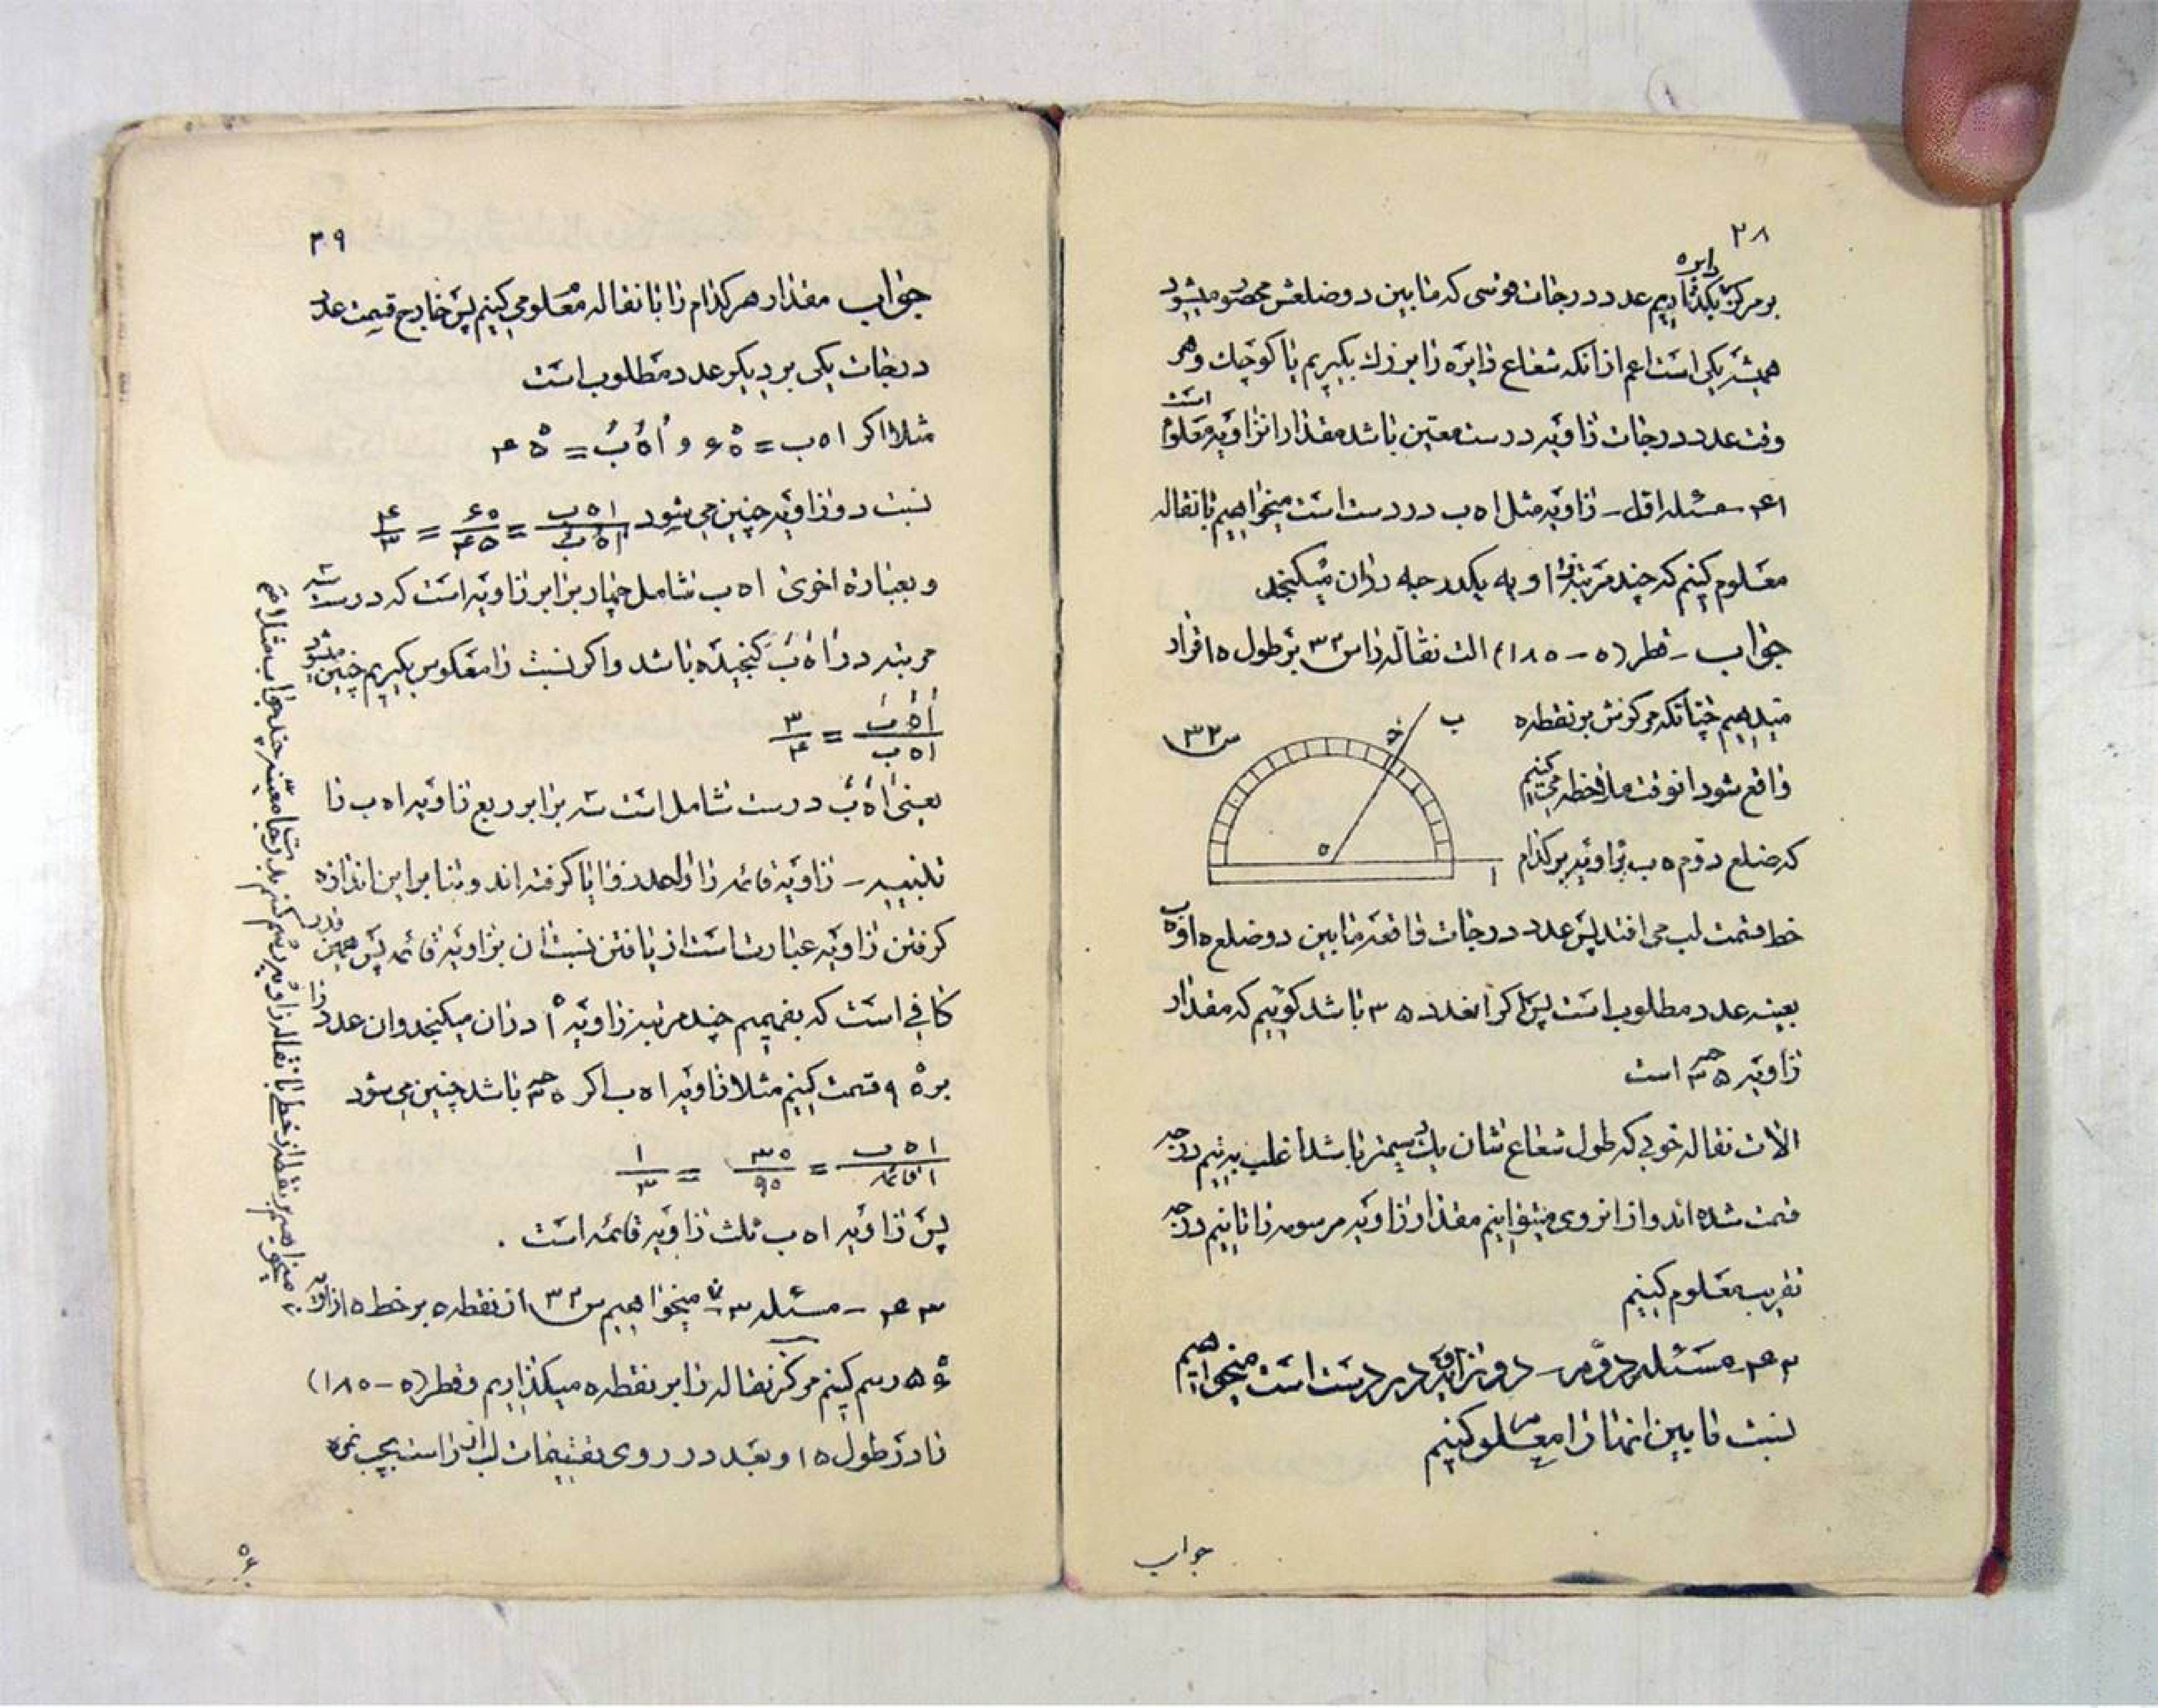 ۲۸
بر مرکز یک دایره قرار دهیم عدد درجات قوسی که مابین دو ضلعش محصور میشود
همیشه یکی است اعم از انکه شعاع دایره را بزرك بگیریم یا کوچك و هر
وقت عدد درجات زاویه در دست معین باشد مقدار انزاویه معلوم است
۴۱ – مسئله اول – زاویه مثل ا ه ب در دست است میخواهیم با نقاله
معلوم کنیم که چند مرتبه زاویه یکدرجه در ان میگنجد
جواب – قطر (۰ – ۱۸۰) الت نقاله را س ۳۲ بر طول ه ا قرار
میدهیم چنانکه مرکزش بر نقطه ه
واقع شود انوقت ملاحظه می کنیم
که ضلع دوم ه ب زاویه بر کدام
س ۳۲
ب
ه
ا
خط قسمت لب می افتد پس عدد درجات واقعه مابین دو ضلع ه ا و ه ب
بعینه عدد مطلوب است پس اگر انعدد ۳۵ باشد گوئیم که مقدار
زاویه ۳۵ درجه است
الات نقاله خوبی که طول شعاع شان یك دسیمتر باشد اغلب به نیم درجه
قسمت شده اند و از انروی میتوانیم مقدار زاویه مرسومه را تا نیم درجه
تقریب معلوم کنیم
۴۲ – مسئله دوم – دو زاویه در دست است میخواهیم
نسبت مابین انها را معلوم کنیم
جواب
۳۹
جواب مقدار هر کدام را با نقاله معلوم می کنیم پس خارج قسمت عدد
درجات یکی بر دیگر عدد مطلوب است
مثلا اگر ا ه ب = ۶۰° و اَ هَ بَ = ۴۵°
نسبت دو زاویه چنین می شود ا ه ب / اَ هَ بَ = ۶۰/۴۵ = ۴/۳
و بعبارة اخری ا ه ب شامل چهار برابر زاویه است که درست سه
مرتبه در اَ هَ بَ گنجیده باشد و اگر نسبت را معکوس بگیریم چنین میشود
اَ هَ بَ / ا ه ب = ۳/۴
یعنی اَ هَ بَ درست شامل است سه برابر ربع زاویه ا ه ب را
تنبیه – زاویه قائمه را واحد زوایا گرفته اند و بنا بر این اندازه
گرفتن زاویه عبارت است از یافتن نسبت ان بزاویه قائمه پس همین قدر
کافی است که بفهمیم چند مرتبه زاویه ۱° در ان میگنجد و ان عدد را
بر ۹۰° قسمت کنیم مثلا زاویه ا ه ب اگر ۳۰ درجه باشد چنین می شود
ا ه ب / ۱ قائمه = ۳۰/۹۰ = ۱/۳
پس زاویه ا ه ب ثلث زاویه قائمه است .
۴۳ – مسئله ۳ – میخواهیم س ۳۲ از نقطه ه بر خط ه ا زاویه
۵۶° رسم کنیم مرکز نقاله را بر نقطه ه میگذاریم و قطر (۰ – ۱۸۰)
را در طول ه ا و بعد در روی تقسیمات لب از راست بچپ نمره
۵۶